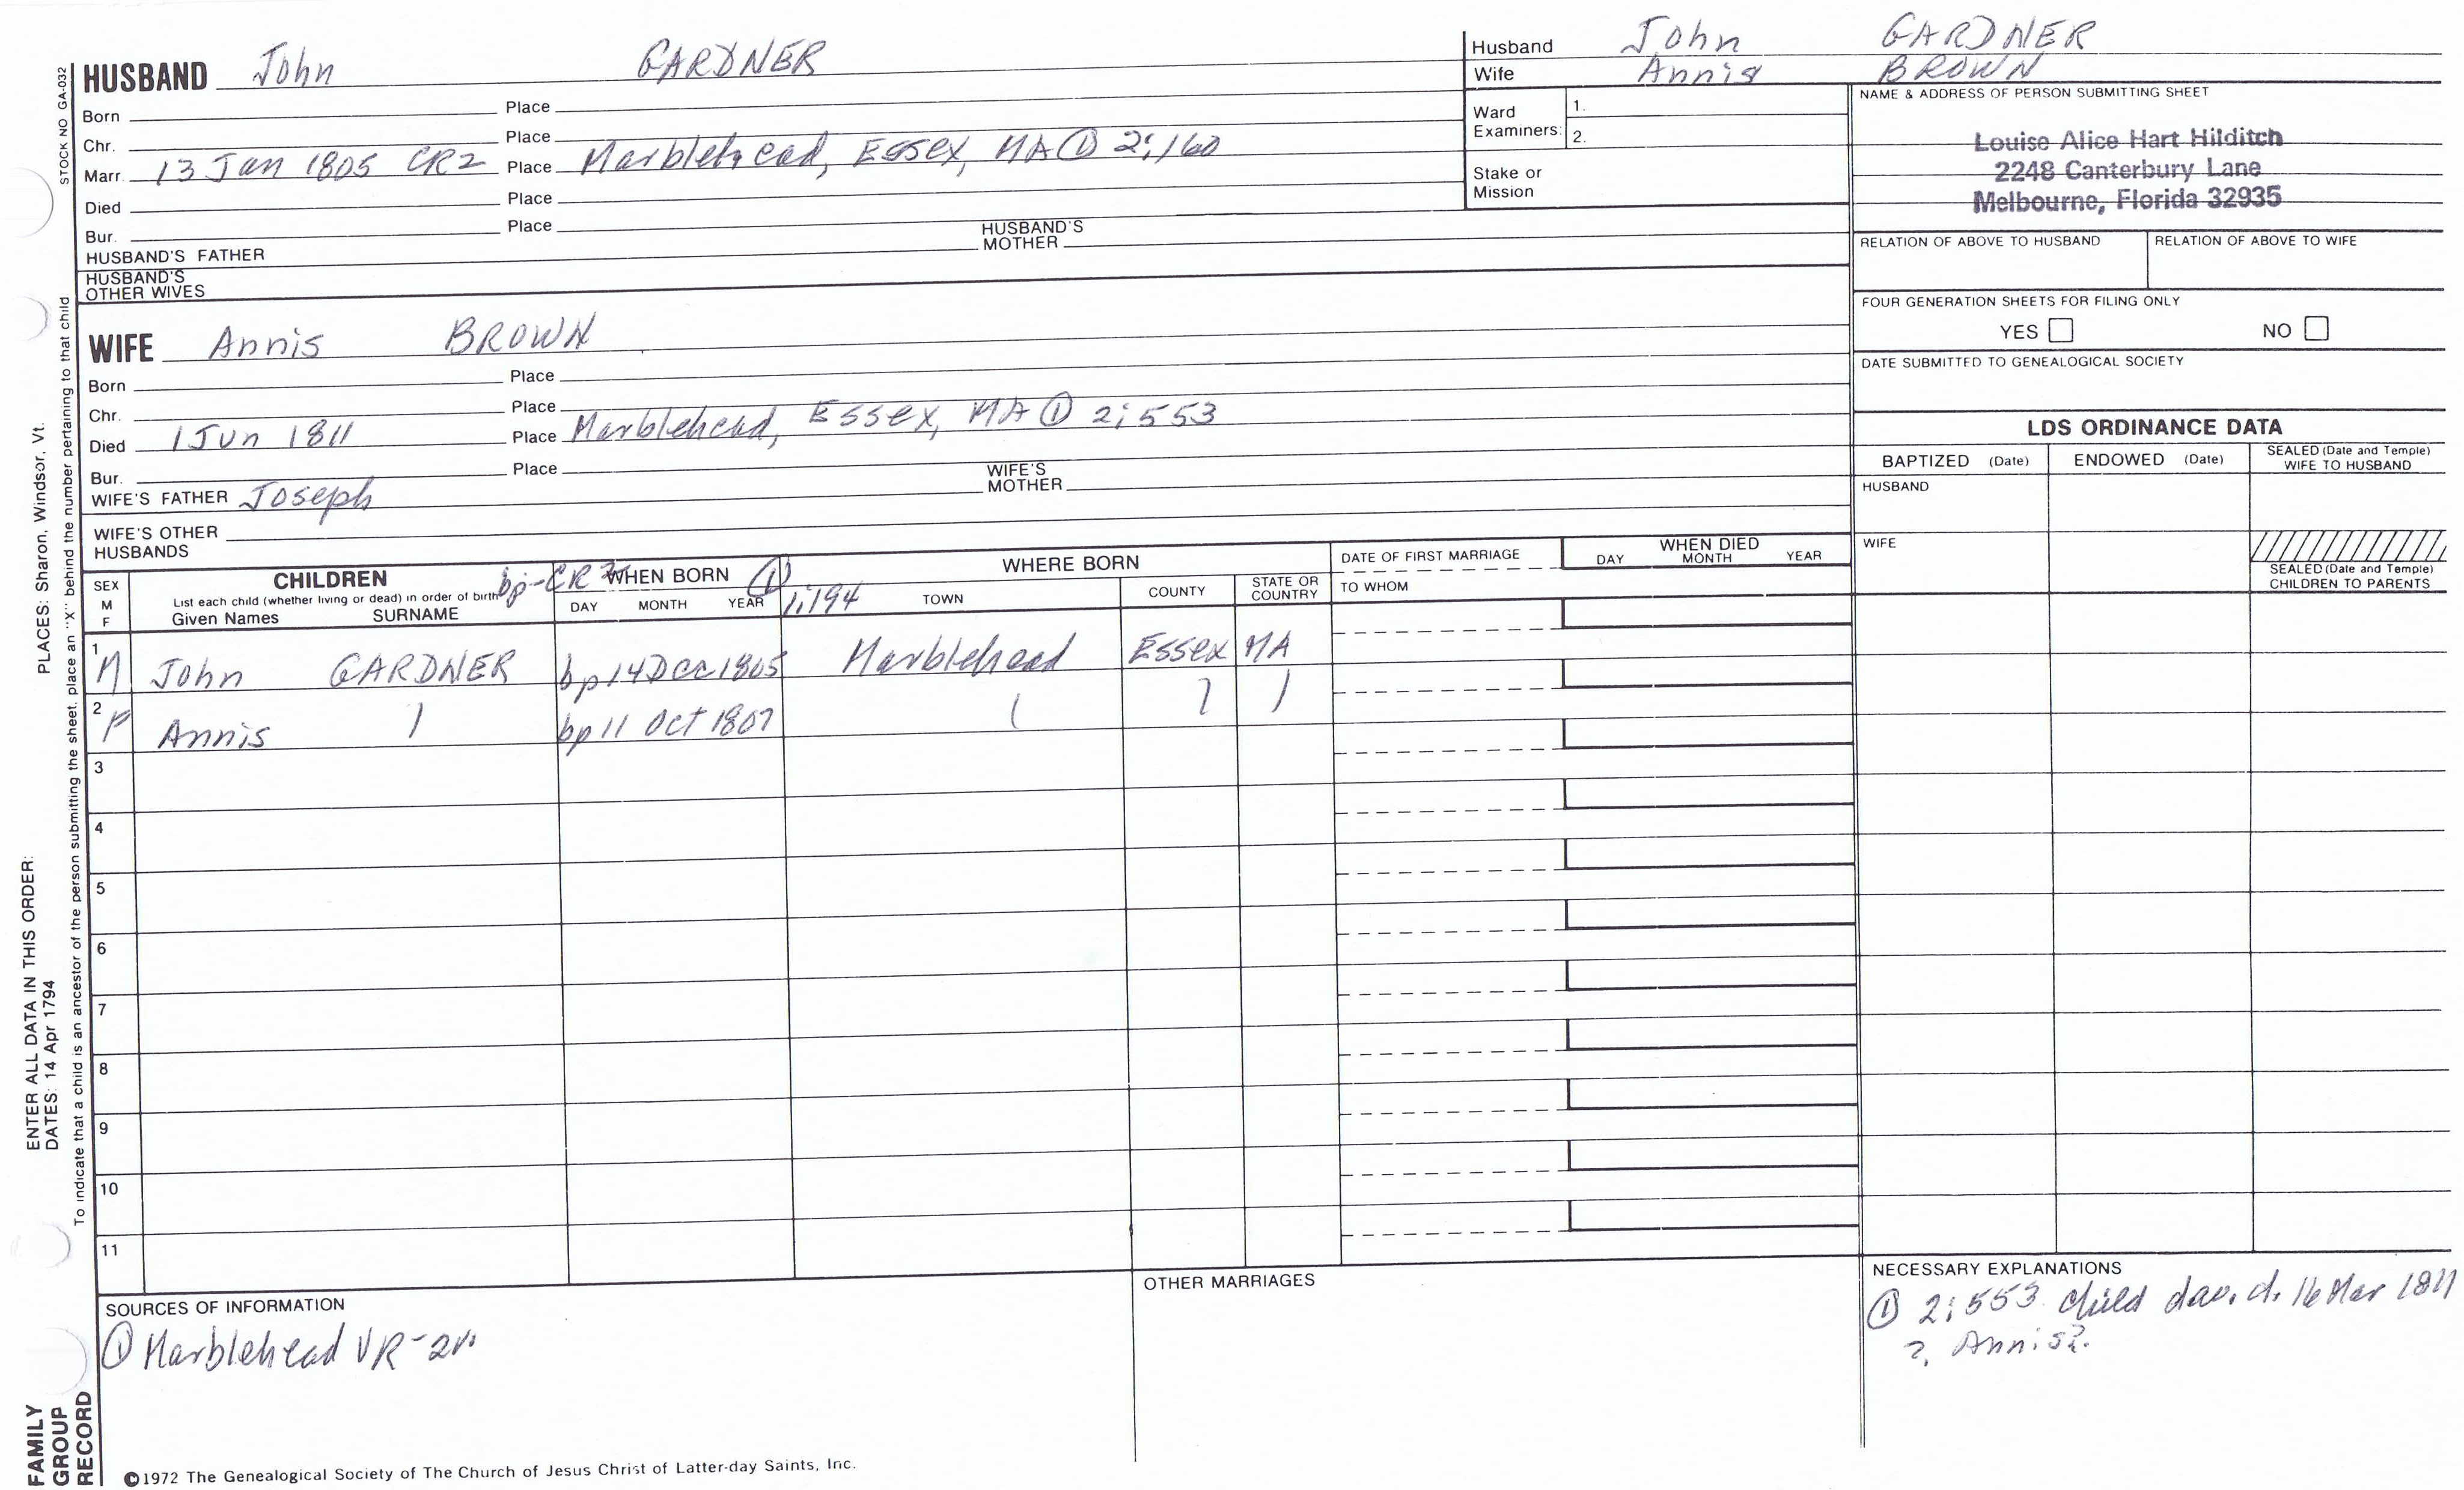 HUSBAND John GARDNER
Born Place
Chr. Place
Marr. 13 Jan 1805 CR2 Place Marblehead, Essex, MA ① 2:160
Died Place
Bur. Place
HUSBAND'S FATHER HUSBAND'S MOTHER
HUSBAND'S OTHER WIVES
WIFE Annis BROWN
Born Place
Chr. Place
Died 1 Jun 1811 Place Marblehead, Essex, MA ① 2:553
Bur. Place
WIFE'S FATHER Joseph WIFE'S MOTHER
WIFE'S OTHER HUSBANDS
Husband John GARDNER
Wife Annis BROWN
Ward Examiners: 1.
2.
Stake or Mission
NAME & ADDRESS OF PERSON SUBMITTING SHEET
Louise Alice Hart Hilditch
2248 Canterbury Lane
Melbourne, Florida 32935
RELATION OF ABOVE TO HUSBAND RELATION OF ABOVE TO WIFE
FOUR GENERATION SHEETS FOR FILING ONLY
YES NO
DATE SUBMITTED TO GENEALOGICAL SOCIETY
LDS ORDINANCE DATA
BAPTIZED (Date) ENDOWED (Date) SEALED (Date and Temple) WIFE TO HUSBAND
HUSBAND
WIFE
SEALED (Date and Temple) CHILDREN TO PARENTS
SEX M F
CHILDREN
List each child (whether living or dead) in order of birth
Given Names SURNAME
bp-CR WHEN BORN ①
DAY MONTH YEAR 1:194
WHERE BORN
TOWN COUNTY STATE OR COUNTRY
DATE OF FIRST MARRIAGE
TO WHOM
WHEN DIED
DAY MONTH YEAR
1 M John GARDNER bp 14 Dec 1805 Marblehead Essex MA
2 F Annis bp 11 Oct 1807
3
4
5
6
7
8
9
10
11
SOURCES OF INFORMATION
① Marblehead VR-2v.
OTHER MARRIAGES
NECESSARY EXPLANATIONS
① 2:553 child dau. d. 16 Mar 1811
? Annis?
©1972 The Genealogical Society of The Church of Jesus Christ of Latter-day Saints, Inc.
STOCK NO GA-032
To indicate that a child is an ancestor of the person submitting the sheet, place an "X" behind the number pertaining to that child
ENTER ALL DATA IN THIS ORDER:
DATES: 14 Apr 1794 PLACES: Sharon, Windsor, Vt.
FAMILY
GROUP
RECORD